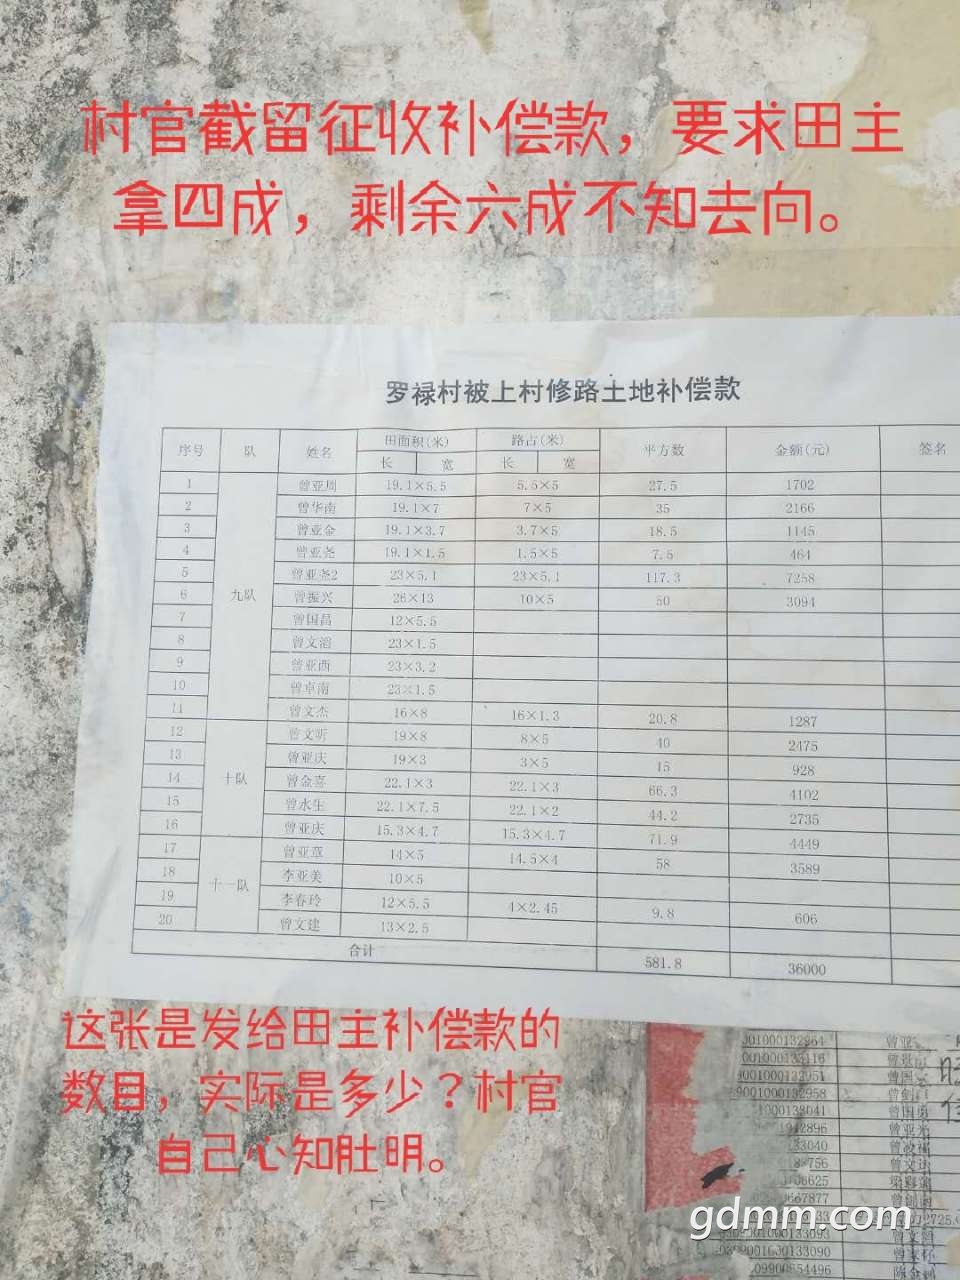 村官截留征收补偿款，要求田主
拿四成，剩余六成不知去向。
罗禄村被上村修路土地补偿款
序号 队 姓名 田面积(米) 路占(米) 平方数 金额(元) 签名
长 宽 长 宽
1 曾亚周 19.1×5.5 5.5×5 27.5 1702
2 曾华南 19.1×7 7×5 35 2166
3 曾亚金 19.1×3.7 3.7×5 18.5 1145
4 曾亚尧 19.1×1.5 1.5×5 7.5 464
5 曾亚尧2 23×5.1 23×5.1 117.3 7258
6 九队 曾振兴 26×13 10×5 50 3094
7 曾国昌 12×5.5
8 曾文滔 23×1.5
9 曾亚西 23×3.2
10 曾卓南 23×1.5
11 曾文杰 16×8 16×1.3 20.8 1287
12 曾文昕 19×8 8×5 40 2475
13 曾亚庆 19×3 3×5 15 928
14 十队 曾金喜 22.1×3 22.1×3 66.3 4102
15 曾水生 22.1×7.5 22.1×2 44.2 2735
16 曾亚庆 15.3×4.7 15.3×4.7 71.9 4449
17 曾亚章 14×5 14.5×4 58 3589
18 李亚美 10×5
19 十一队 李春玲 12×5.5 4×2.45 9.8 606
20 曾文建 13×2.5
合计 581.8 36000
这张是发给田主补偿款的
数目，实际是多少？村官
自己心知肚明。
001000132964 曾亚
001000133116
9001000132951 曾国
09001000132958
1000133041
1912896
133040
06625
0667877
309001000133093
0309900100133090
09900854496
gdmm.com